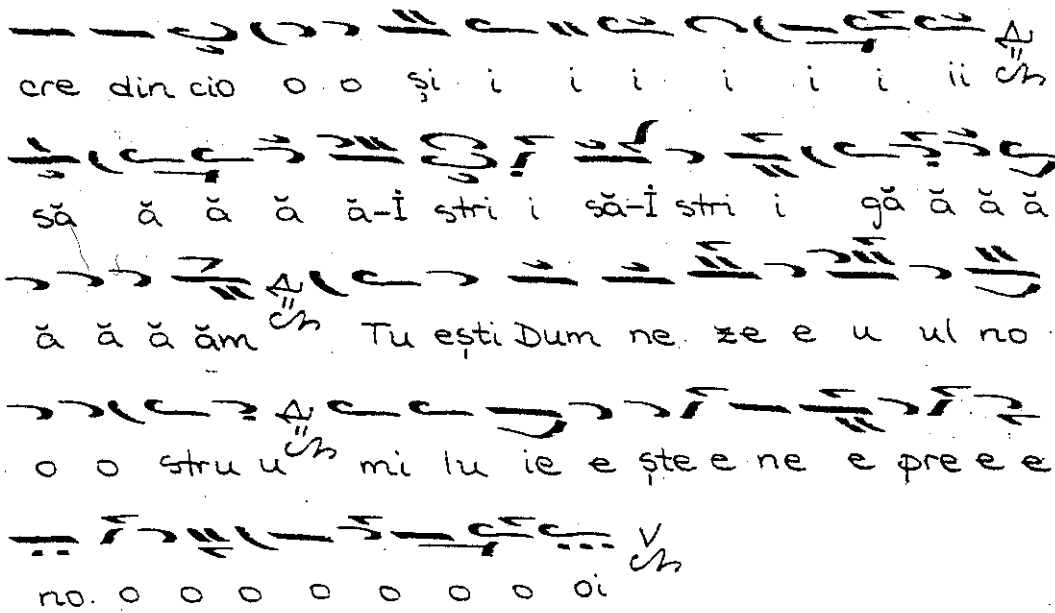 cre din cio o o și i i i i i i ii
să ă ă ă ă-Î stri i să-Î stri i gă ă ă ă
ă ă ă ăm Tu ești Dum ne ze e u ul no
o o stru u mi lu ie e ște e ne e pre e e
no. o o o o o o o oi